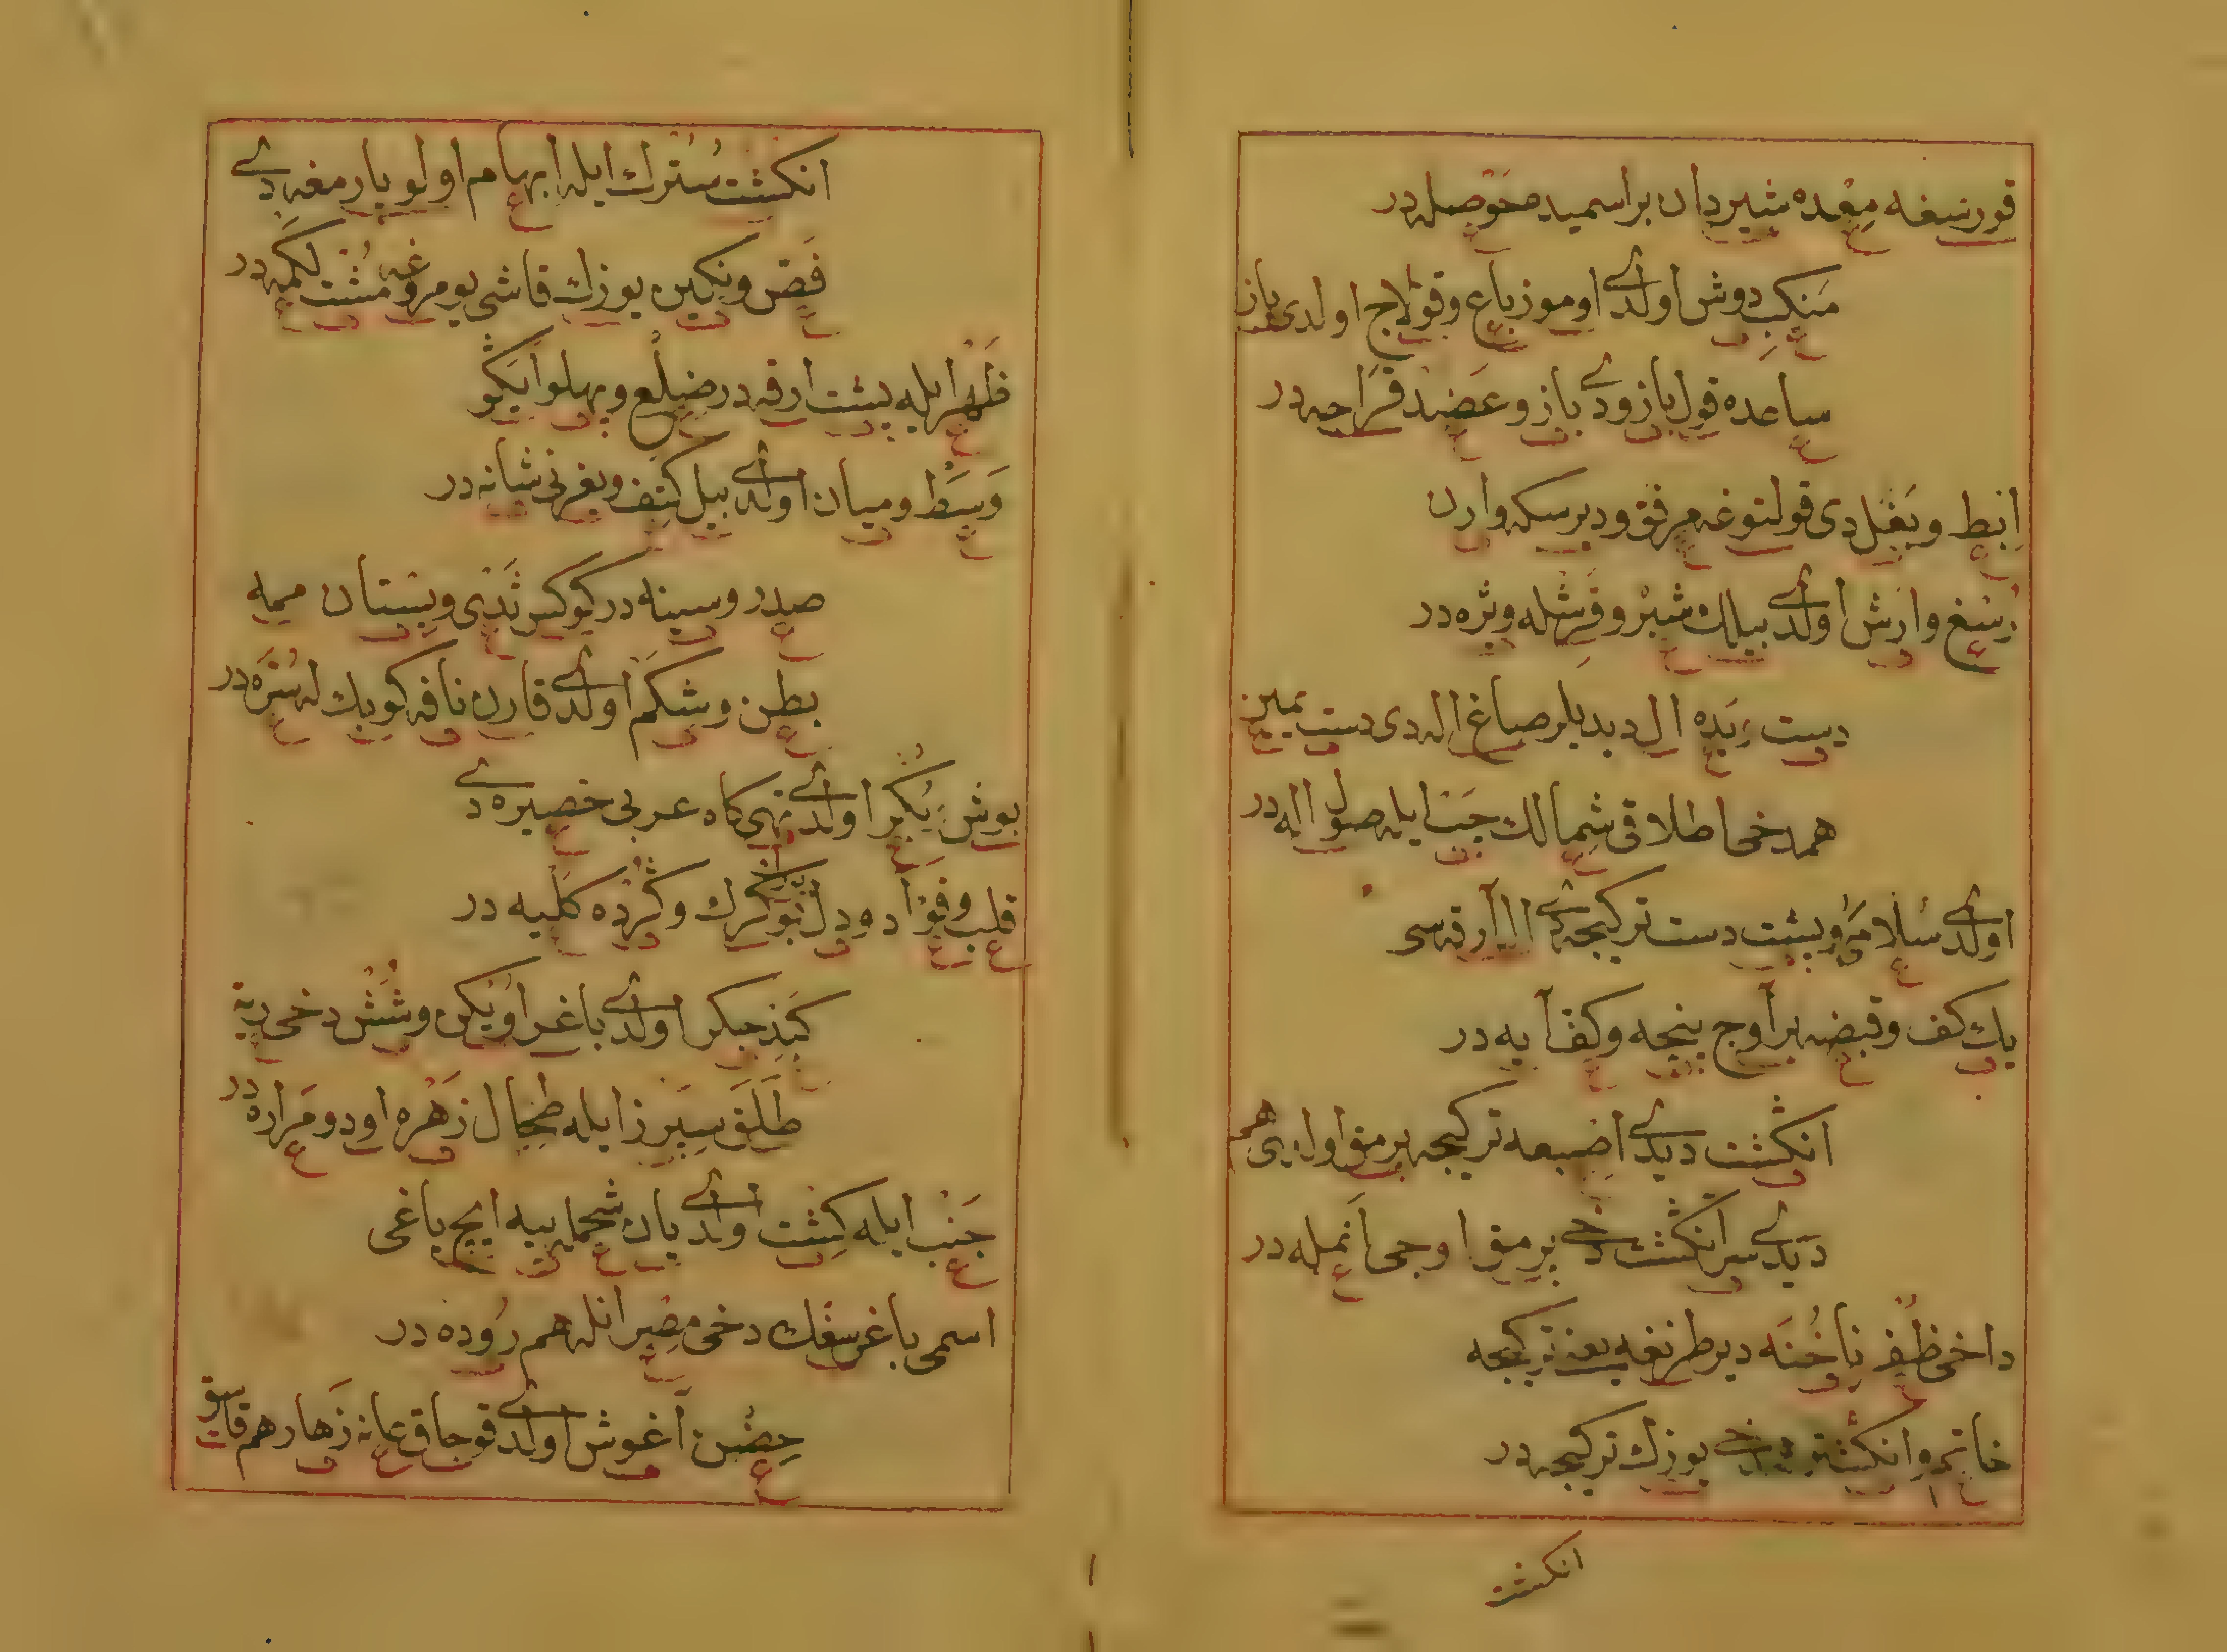 قورسغه مِعْده شیردان بر اسمیده حَوْصله در
مَنکِب دوش اولدی اوموز باع و قولاج اولدی یاز
ساعده قول بازو دی بازو عَضُد قراجه در
اِبط و بَغَل دی قولتوغه مِرفق و دیرسکه وارن
رُسْغ وارش اولدی بیلك شبْر و قَرِشْله وژه در
دست یَده ال دیدیلر صاغ اله دی دست یمین
هم دخی اطلاقی شِمالك چَپ ایله صول اله در
اولدی سُلامی و پشت دست ترکیجه دی ال آرقه سی
یك کف و قبضه بر آوج پنجه و کف آیه در
انکشت دیدی اِصْبعه ترکیجه برمق اولری هم
دیدی سر انکشت دخی برمق اوجی اَنمله در
داخی ظُفر ناخُنَه دیر طرنغه ترکیجه
خاتم و انکشتره دخی یوزك ترکیجه در
انکشت
انکشت سُتُرك ایله ابهام اولو پارمغه دی
فَصّ و نکین یوزك قاشی یومروغه مُشْت لَکمه در
ظَهْر ایله پشت ارقه در ضِلْع و پهلو اَیَکو
وَسَط و میان اولدی بیل کتِف و یغرنی شانه در
صدر و سینه در کوکس ثَدْی و پستان ممه
بطن و شکم اولدی قارن نافه کوبك له سُرّه در
بوش یُکُر اولدی تهی کاه عربی خصیره دی
قلب و فؤاد و دل بوکرك و کُرده کُلْیه در
کَبِد جکر اولدی باغر اویکن و شُش دخی ریه
طَلَق سپرز ایله طحال زَهْره اود و مَراره در
جَنْب ایله کشت اولدی یان شحم ایله پیه ایچ یاغی
اسمی باغرسغك دخی مصیر انله هم رُوده در
حِضْن آغوش اولدی قوجاق عانه زَهار هم قاسق